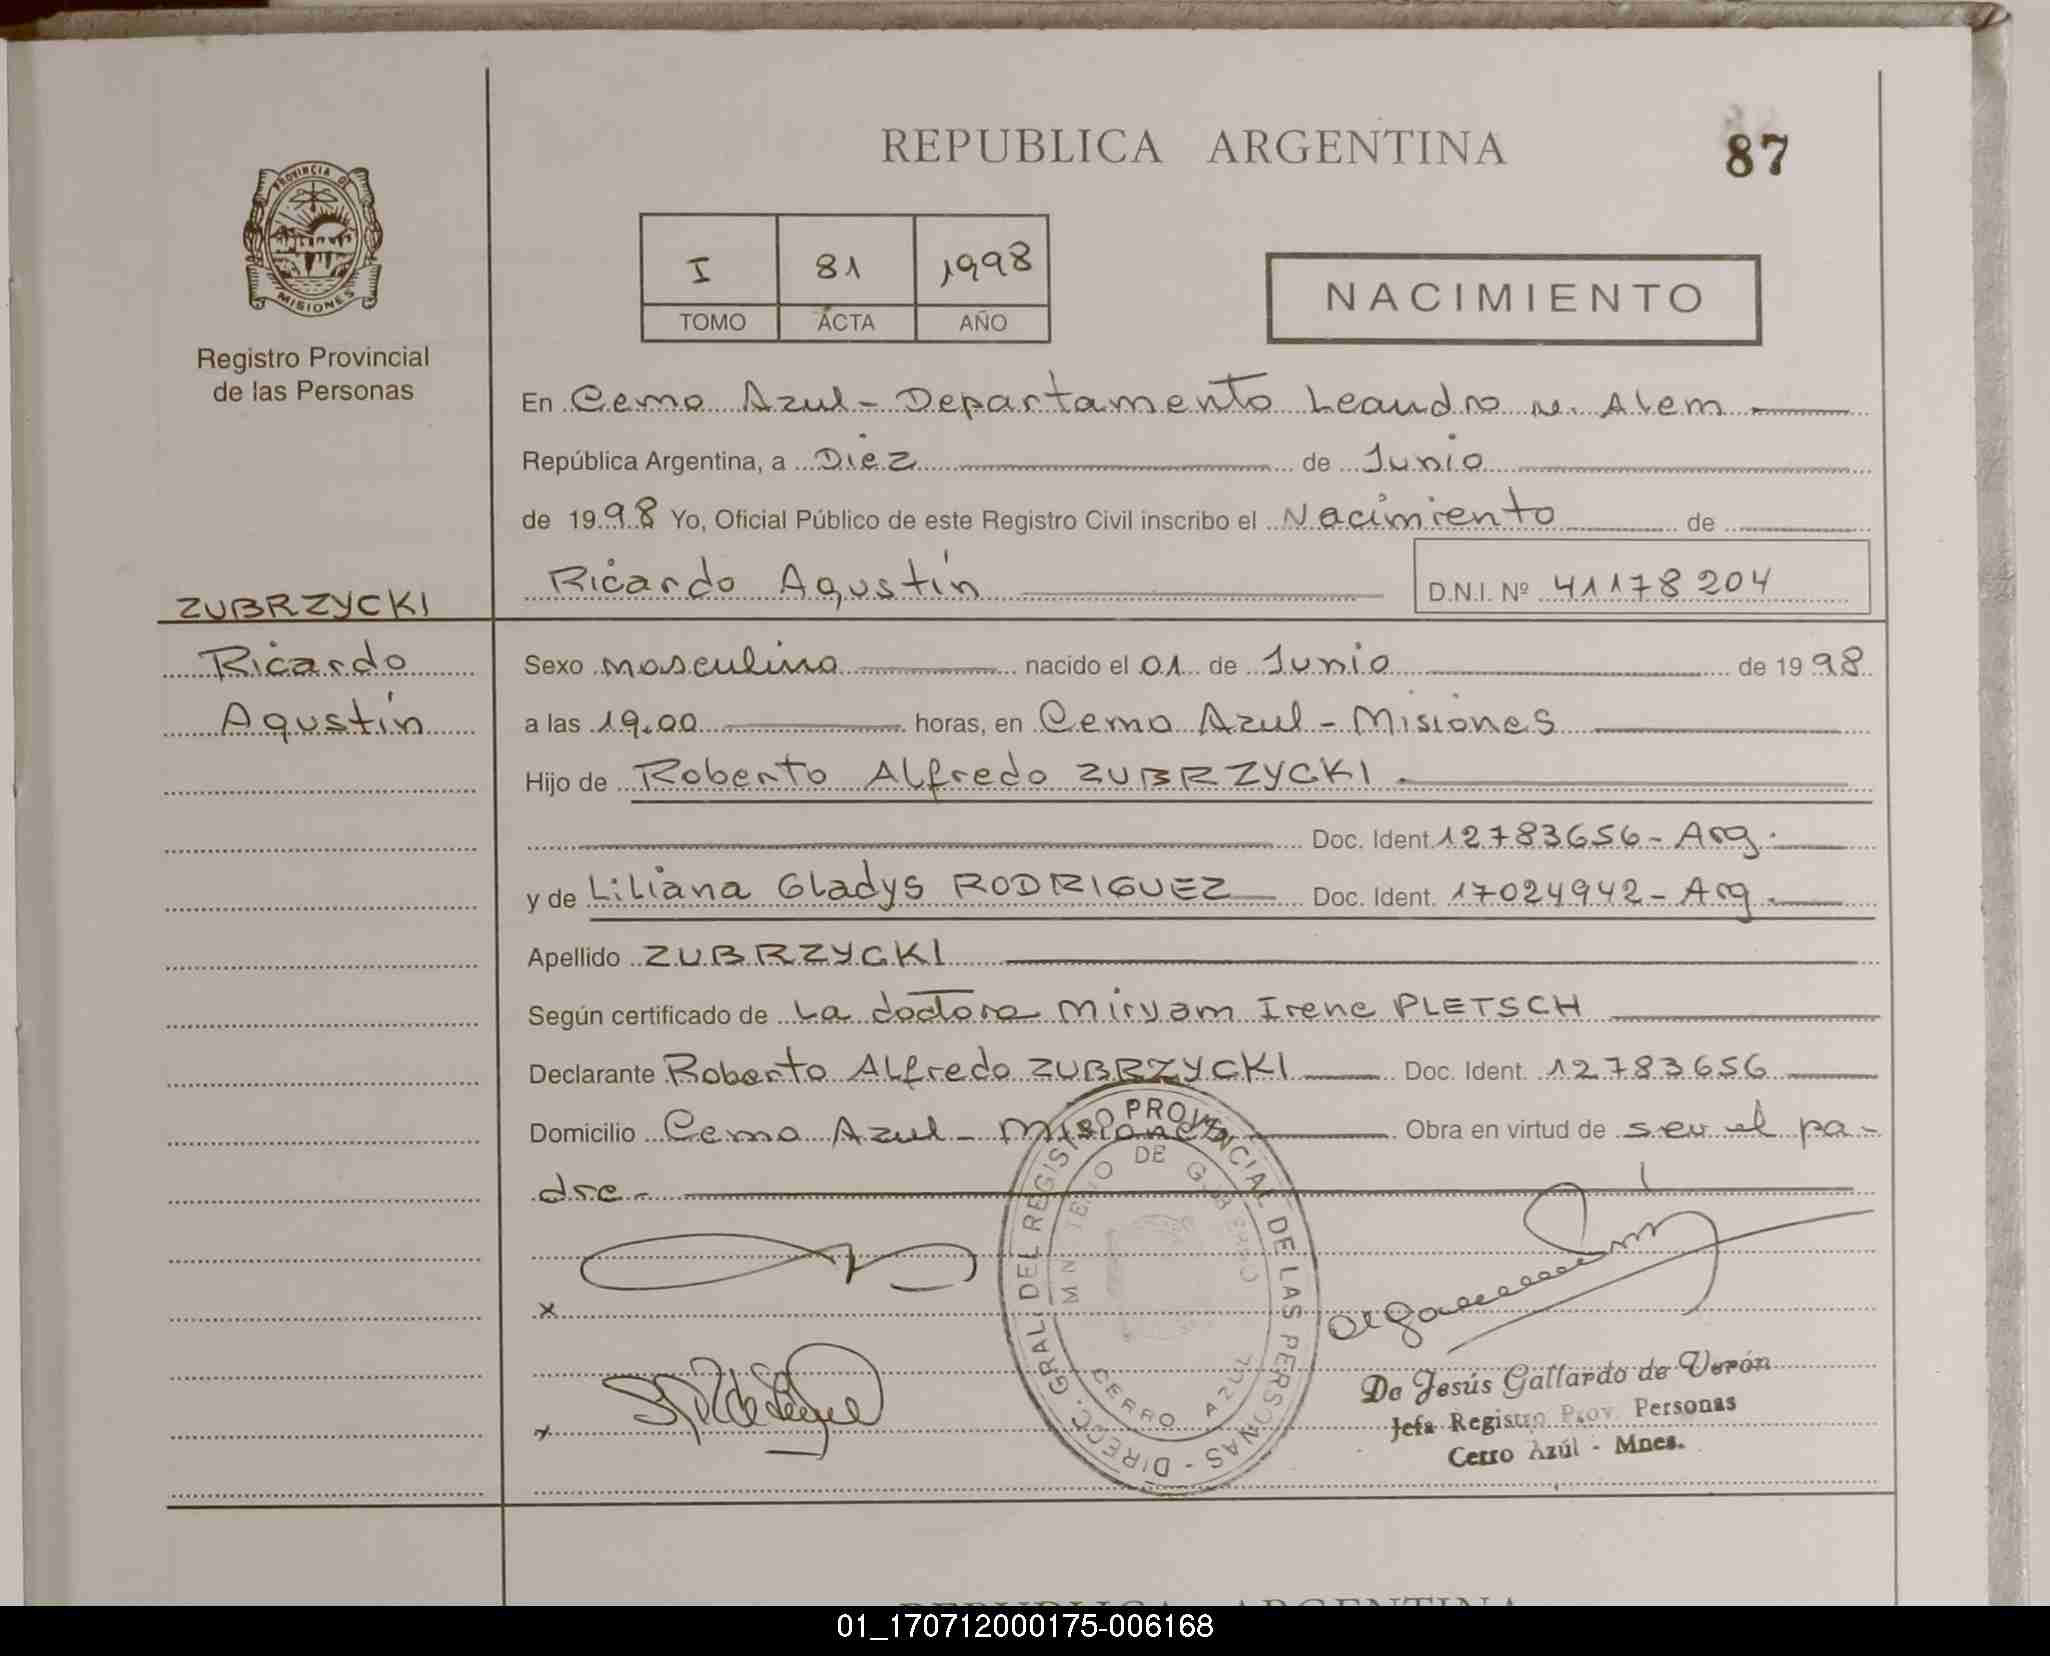 REPUBLICA ARGENTINA
87
PROVINCIA DE
MISIONES
Registro Provincial
de las Personas
I 81 1998
TOMO ACTA AÑO
NACIMIENTO
En Cerro Azul - Departamento Leandro N. Alem
República Argentina, a Diez de Junio
de 1998 Yo, Oficial Público de este Registro Civil inscribo el Nacimiento de
Ricardo Agustín D.N.I. Nº 41178204
ZUBRZYCKI
Ricardo
Agustín
Sexo masculino nacido el 01 de Junio de 1998
a las 19.00 horas, en Cerro Azul - Misiones
Hijo de Roberto Alfredo ZUBRZYCKI
Doc. Ident. 12783656 - Arg.
y de Liliana Gladys RODRIGUEZ Doc. Ident. 17024942 - Arg.
Apellido ZUBRZYCKI
Según certificado de La doctora Miryam Irene PLETSCH
Declarante Roberto Alfredo ZUBRZYCKI Doc. Ident. 12783656
Domicilio Cerro Azul - Misiones Obra en virtud de ser el pa-
dre.-
DIRECC. GRAL. DEL REGISTRO PROVINCIAL DE LAS PERSONAS -
MINISTERIO DE GOBIERNO
CERRO AZUL
x
x
De Jesús Gallardo de Verón
Jefa Registro Prov. Personas
Cerro Azúl - Mnes.
REPUBLICA ARGENTINA
01_170712000175-006168